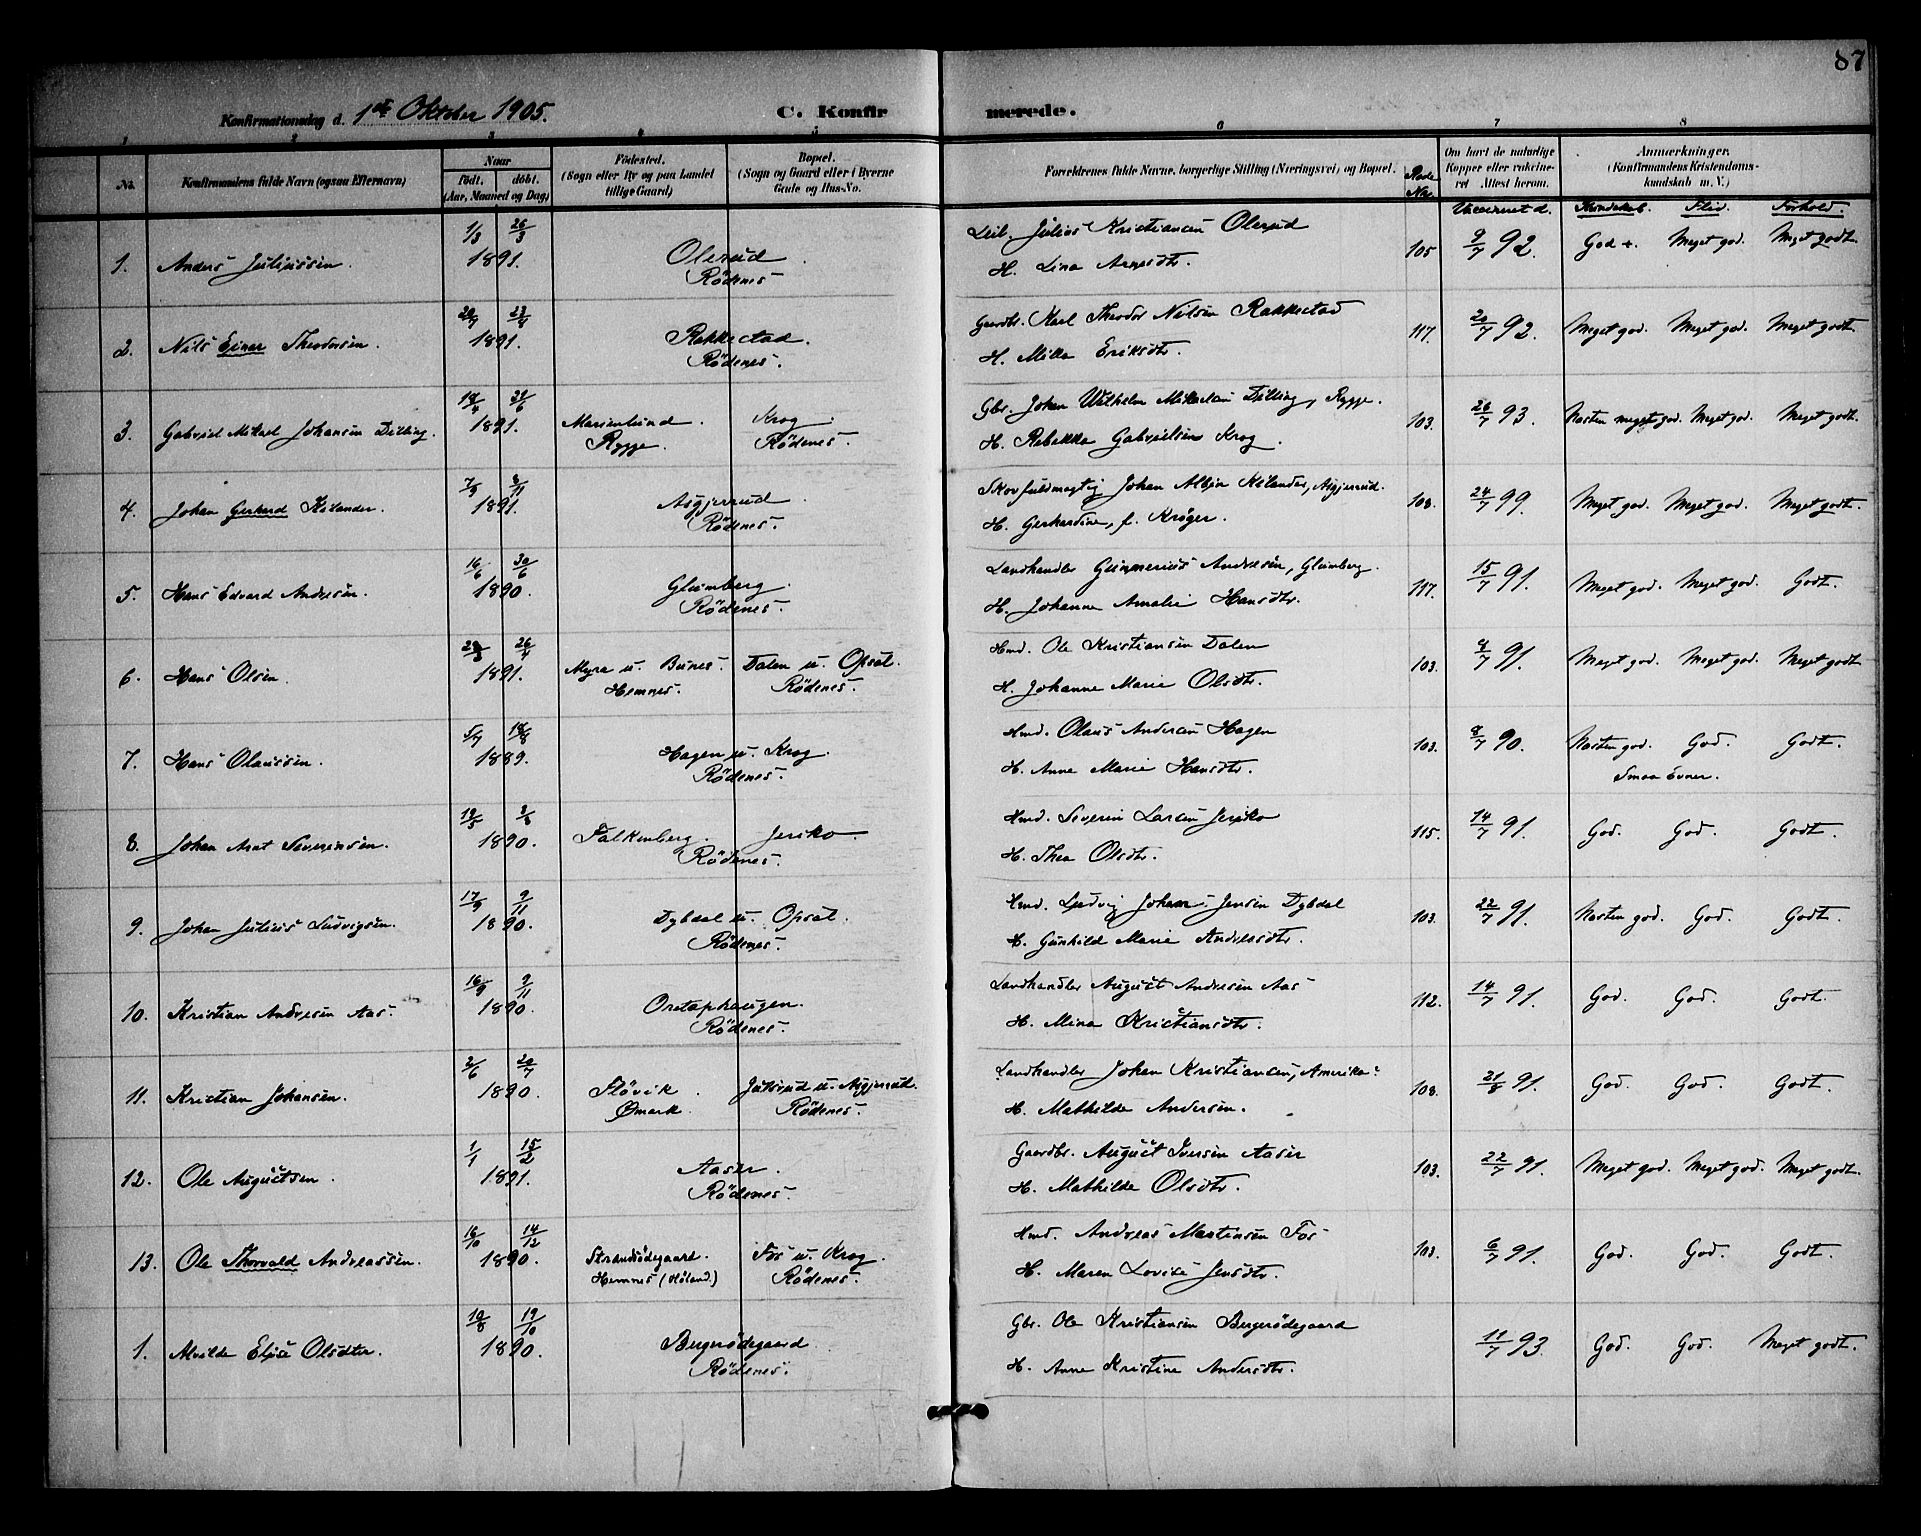 87
Konfirmationsdag d. 1ste Oktober 1905.
C. Konfirmerede.
1 2 3 4 5 6 7 8
No.
Konfirmandens fulde Navn (ogsaa Efternavn)
Naar
födt. döbt.
(Aar, Maaned og Dag)
Födested.
(Sogn eller By og paa Landet
tillige Gaard)
Bopæl.
(Sogn og Gaard eller i Byerne
Gade og Hus-No.
Forældrenes fulde Navne, borgerlige Stilling (Næringsvei) og Bopæl.
Rode No.
Om havt de naturlige
Kopper eller vakcine-
ret Attest herom.
Anmærkninger.
(Konfirmandens Kristendoms-
kundskab m. V.)
Vaccineret d. Kundskab. Flid. Forhold.
1. Anders Juliussen. 1/3 26/3 1891. Olerud Rödenes. Leil. Julius Kristiansen Olerud 105 9/7 92. God +. Meget god. Meget godt.
H. Lina Arnesdtr.
2. Nils Einar Theodorsen. 1891. Rakkestad. Rödenes. Gaardbr. Karl Theodor Nilsen Rakkestad 117. 20/7 92. Meget god. Meget god. Meget godt.
H. Milla Eriksdtr.
3. Gabriel Mikael Johansen Dilling. 1891. Marienlund Rygge. Krog Rödenes. Gbr. Johan Wilhelm Mikelsen Dilling, Rygge. 103. 26/7 93. Næsten meget god. Meget god. Meget godt.
H. Rebekka Gabrielsen Krog.
4. Johan Gerhard Kilander. 1891. Asgjerrud Rödenes. Skovfuldmægtig Johan Albin Kilander, Asgjerrud. 108. 24/7 99. Meget god. Meget god. Meget godt.
H. Gerhardine, f. Kröger.
5. Hans Edvard Andresen. 16/6 30/6 1890. Glumberg. Rödenes. Landhandler Gunnerius Andresen, Glumberg. 117. 15/7 91. Meget god. Meget god. Godt.
H. Johanne Amalie Hansdtr.
6. Hans Olsen. 26/4 1891. Myra u. Bunes. Hemnes. Dalen u. Opsal. Rödenes. Hmd. Ole Kristiansen Dalen 103. 8/7 91. Meget god. Meget god. Meget godt.
H. Johanne Marie Olsdtr.
7. Hans Olaussen. 5/7 18/8 1889. Hagen u. Krog. Rödenes. Hmd. Olaus Andersen Hagen 103. 8/7 90. Næsten god. God. Godt.
H. Anne Marie Hansdtr. Smaa Evner.
8. Johan Arnt Severinsen. 1890. Falkenberg. Jeriko. Rödenes. Hmd. Severin Larsen Jeriko 115. 14/7 91. God. God. Godt.
H. Thea Olsdtr.
9. Johan Julius Ludvigsen. 17/9 9/11 1890. Dybdal u. Opsal. Rödenes. Hmd. Ludvig Johan Jensen Dybdal 103. 22/7 91. Næsten god. God. Godt.
H. Gunhilde Marie Andreasdtr.
10. Kristian Andresen Aas. 16/9 9/11 1890. Oretaphaugen. Rödenes. Landhandler August Andresen Aas 112. 14/7 91. God. God. Godt.
H. Mina Kristiansdtr.
11. Kristian Johansen. 2/6 20/7 1890. Flövik Ømark. Julsrud u. Asgjerrud. Rödenes. Landhandler Johan Kristiansen, "Amerika" 108. 21/8 91. God. God. Godt.
H. Mathilde Andersen.
12. Ole Augustsen. 1/1 15/2 1891. Aaser. Rödenes. Gaardbr. August Iversen Aaser 103. 22/7 91. Meget god. Meget god. Meget godt.
H. Mathilde Olsdtr.
13. Ole Thorvald Andreassen. 16/10 14/12 1890. Strandsödegaard. Hemnes (Höland.) Fos u. Krog. Rödenes. Hmd. Andreas Martinsen Fos 103. 6/7 91. God. God. Godt.
H. Maren Lovise Jensdtr.
1. Alvilde Elise Olsdtr. 10/8 19/10 1890. Bergerödegaard Rödenes. Gbr. Ole Kristiansen Bergerödegaard 11/7 93. God. God. Meget godt.
H. Anne Kristine Andersdtr.